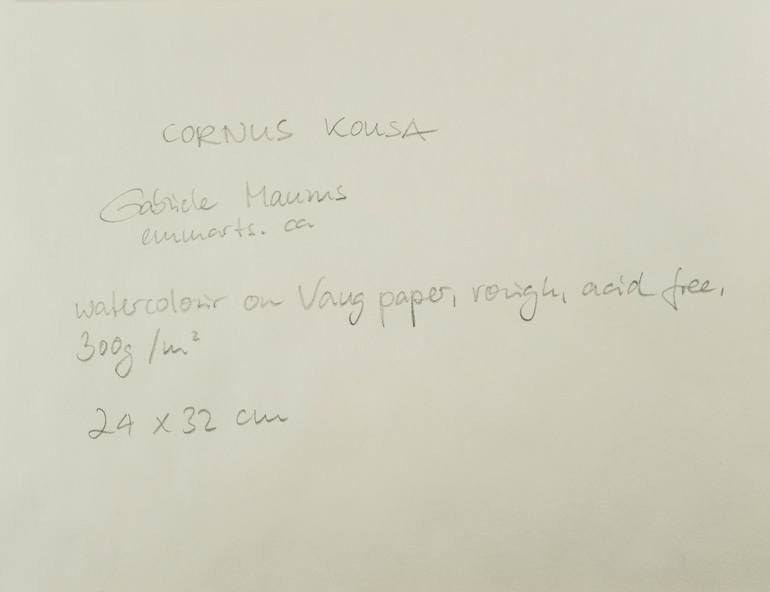 CORNUS KOUSA
Gabriele Maurus
emmarts.ca
watercolour on Vang paper, rough, acid free,
300g/m²
24 x 32 cm